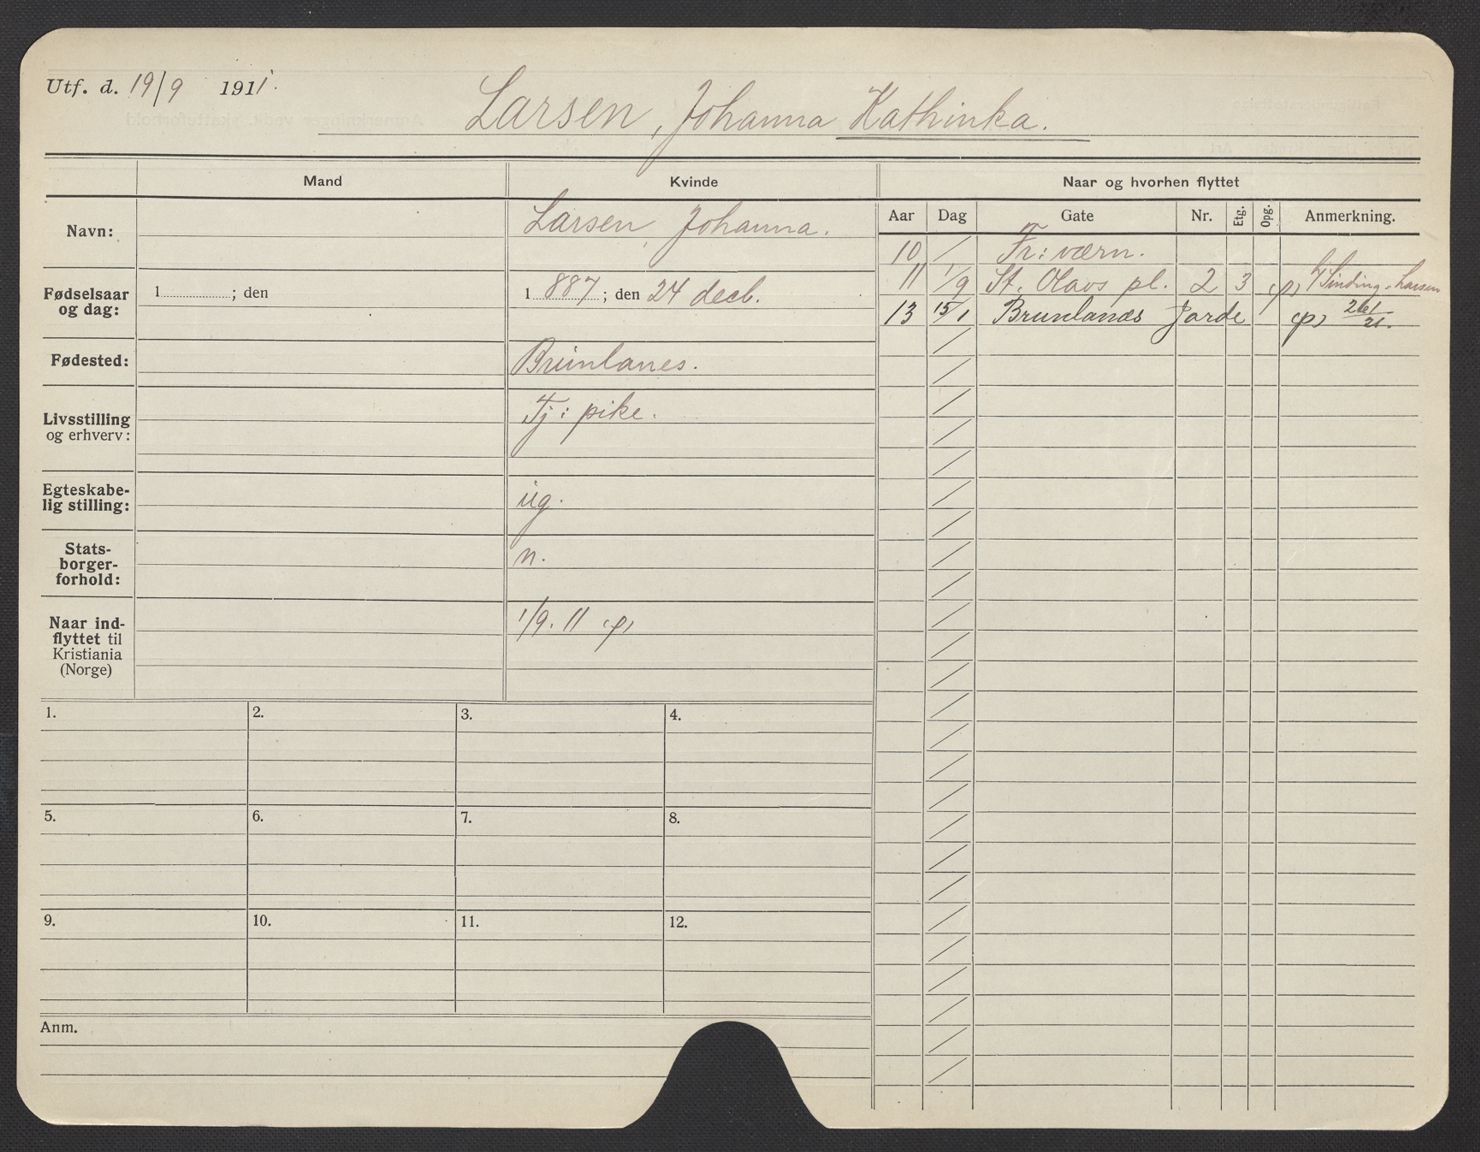 Utf. d. 19/9 1911.
Larsen, Johanna Kathinka.
Mand Kvinde Naar og hvorhen flyttet
Aar Dag Gate Nr. Etg. Opg. Anmerkning.
Navn: Larsen, Johanna.
10 / Fr: værn.
11 1/9 St. Olavs pl. 2 3 Sinding-Larsen
13 15/1 Brunlanæs Jorde
Fødselsaar og dag: 1 ; den 1 887 ; den 24 decb.
Fødested: Brunlanes.
Livsstilling og erhverv: Tj: pike.
Egteskabe-
lig stilling: ug.
Stats-
borger-
forhold: n.
Naar ind-
flyttet til
Kristiania
(Norge) 1/9. 11
1. 2. 3. 4.
5. 6. 7. 8.
9. 10. 11. 12.
Anm.